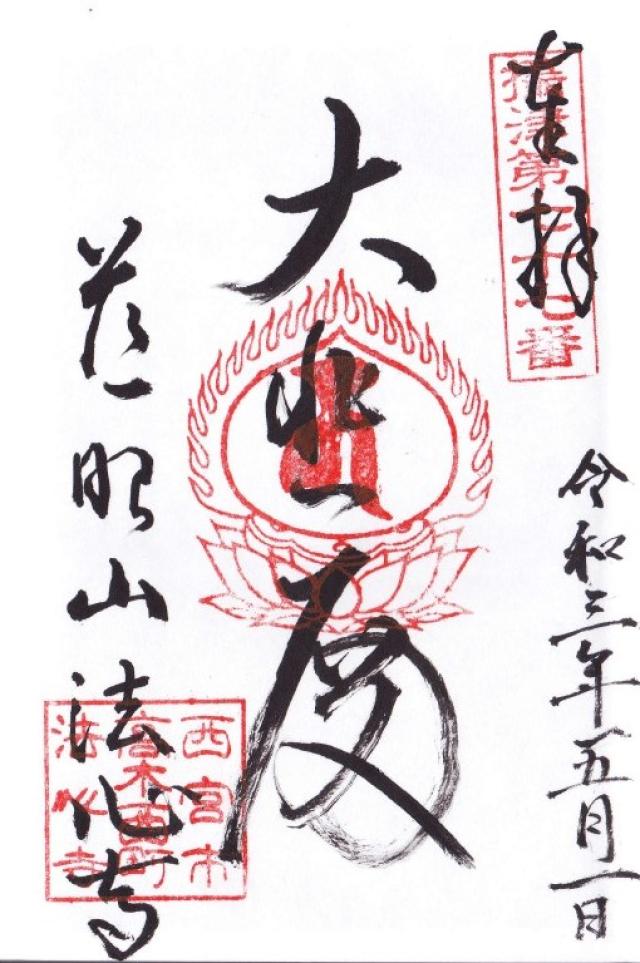 奉拝
攝津第七十七番
令和三年五月一日
大悲殿
慈明山法心寺
西宮市
高木西町
法心寺